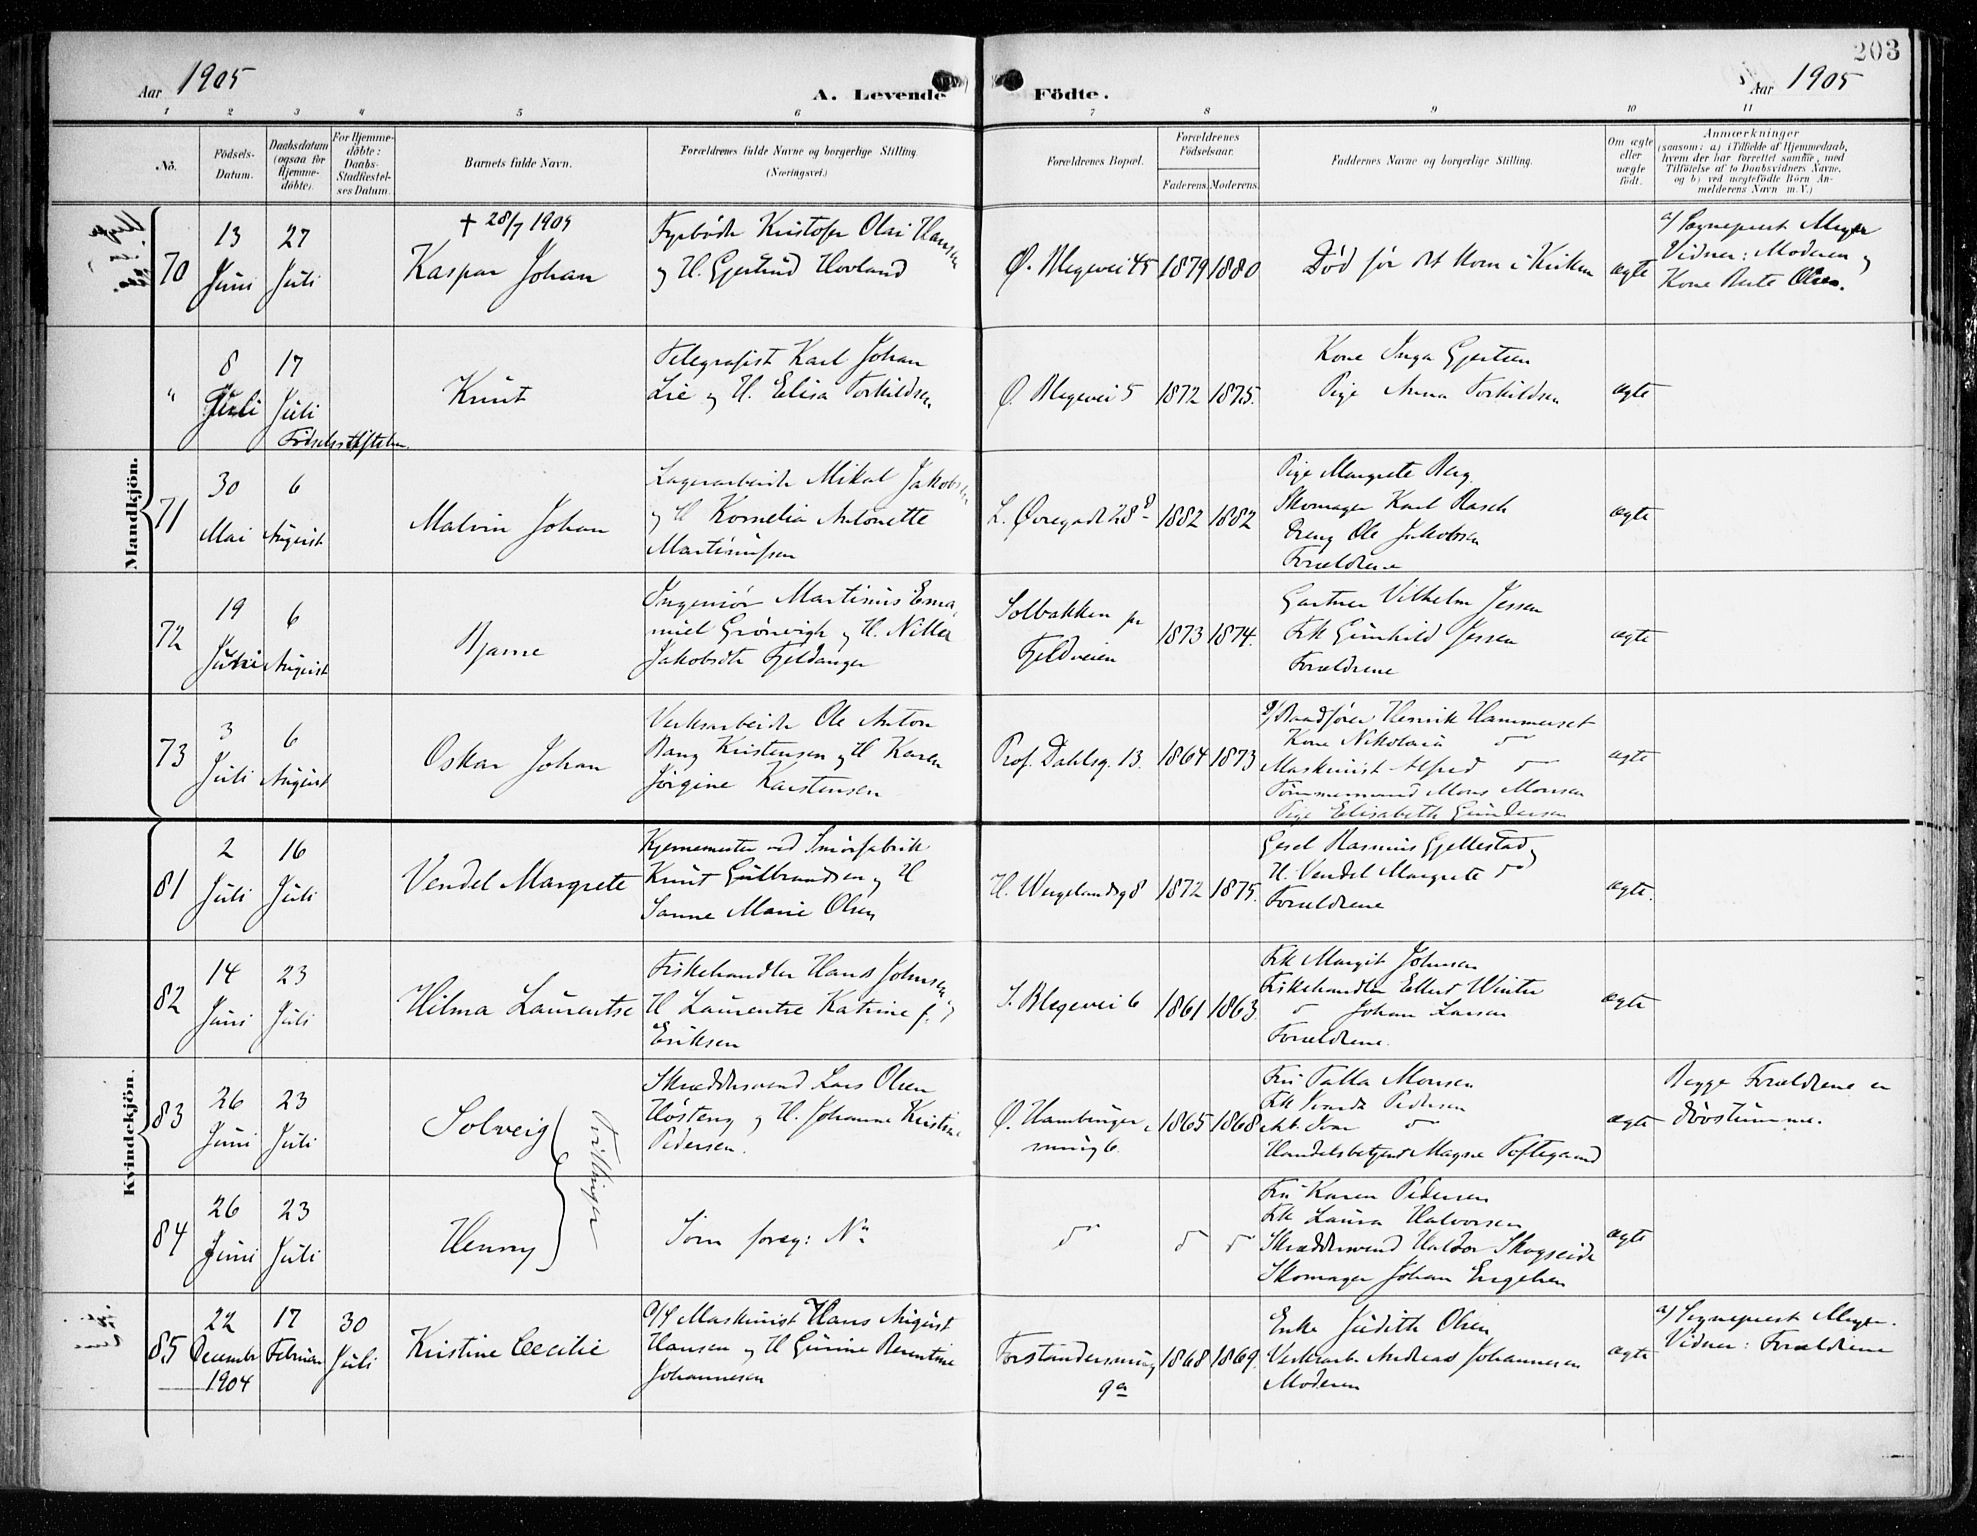 203
Aar 1905
A. Levende Födte.
Aar 1905
1 2 3 4 5 6 7 8 9 10 11
No.
Födsels-
Datum.
Daabsdatum
(ogsaa for
Hjemme-
döbte).
For Hjemme-
döbte:
Daabs-
Stadfæstel-
ses Datum.
Barnets fulde Navn.
Forældrenes fulde Navne og borgerlige Stilling.
(Næringsvei.)
Forældrenes Bopæl.
Forældrenes
Födselsaar.
Faderens. Moderens.
Faddernes Navne og borgerlige Stilling.
Om ægte
eller
uægte
födt.
Anmærkninger
(saasom: a) i Tilfælde af Hjemmedaab,
hvem der har forrettet samme, med
Tilföielse af to Daabsvidners Navne,
og b) ved uægtefödte Börn An-
melderens Navn m. V.)
Mandkjön.
70
13
Juni
27
Juli
+ 28/7 1905
Kaspar Johan
Fyrbøder Kristofer Olai Hansen
og H. Gjertrud Hovland
Ø. Blegevei 45
1879 1880
Død før det kom i Kirken
ægte
a/ Sognepræst Meyer
Vidner: Moderen og
Kone Berte Olsen.
"
8
Juli
17
Juli
Fødselsstiftelsen.
Knut
Telegrafist Karl Johan
Lie og H. Elisa Torkildsen
Ø. Blegevei 5
1872 1875.
Kone Inga Gjertsen
Pige Anna Torkildsen
ægte
71
30
Mai
6
August
Malvin Johan
Lagerarbeider Mikal Jakobsen
og H Kornelia Antonette
Martinussen
L. Øvregade 28
1882 1882
Pige Margrete Berg
Skomager Karl Rasch
Dreng Ole Jakobsen
Forældrene
ægte
72
19
Juni
6
August
Bjarne
Ingeniør Martinus Ema-
nuel Grønvigh og H. Nikka
Jakobdtr Fjeldanger
Solbakken pr
Fjeldveien
1873 1874.
Gartner Vilhelm Jessen
Frk Gunhild Jessen
Forældrene
ægte
73
3
Juli
6
August
Oskar Johan
Verksarbeider Ole Anton
Bang Kristensen og H Karen
Jørgine Karstensen
Prof. Dahlsg. 13.
1864 1873
Baadfører Henrik Hammerset
Kone Nikolaia do
Maskinist Alfred do
Tømmermand Mons Monsen
Pige Elisabeth Gundersen
ægte
Kvindekjön.
81
2
Juli
16
Juli
Vendel Margrete
Kjernemester ved Smørfabrik
Knut Gulbrandsen og H
Sanne Marie Olsen
H. Wergelandsg 8
1872 1875.
Gesel Rasmus Gjellestad
H. Vendel Margrete do
Forældrene
ægte.
82
14
Juni
23
Juli
Hilma Laurentse
Fiskehandler Hans Johnsen og
H Laurentse Katrine f.
Eriksen
S. Blegevei 6
1861 1863.
Frk Margit Johnsen
Fiskehandler Ellert Winter
do Johan Larsen
Forældrene.
ægte
83
26
Juni
23
Juli
Solveig
Tvillinger
Skræddersvend Lars Olsen
Høsteng og H. Johanne Kristine
Pedersen.
Ø. Hamburger-
smug 6.
1865 1868
Fru Talla Monsen
Frk Pedersen
Arb. Ivar do
Handelsbetjent Magne Toftegaard
ægte
Begge Forældrene er
døvstumme.
84
26
Juni
23
Juli
Henny
Som foreg: No
do
do do
Fru Karen Pedersen
Frk Laura Halvorsen
Skræddersvend Haldor Skogseide
Skomager Johan Engelsen
ægte
85
22
December
1904
17
Februar
30
Juli
Kristine Cecilie
Maskinist Hans August
Hansen og H Gurine Berentine
Johannesen
Forstandersmug
9a
1868 1869.
Enke Judith Olsen
Verksarb. Andreas Johannesen
Moderen
ægte
a/ Sognepræst Meyer.
Vidner: Forældrene